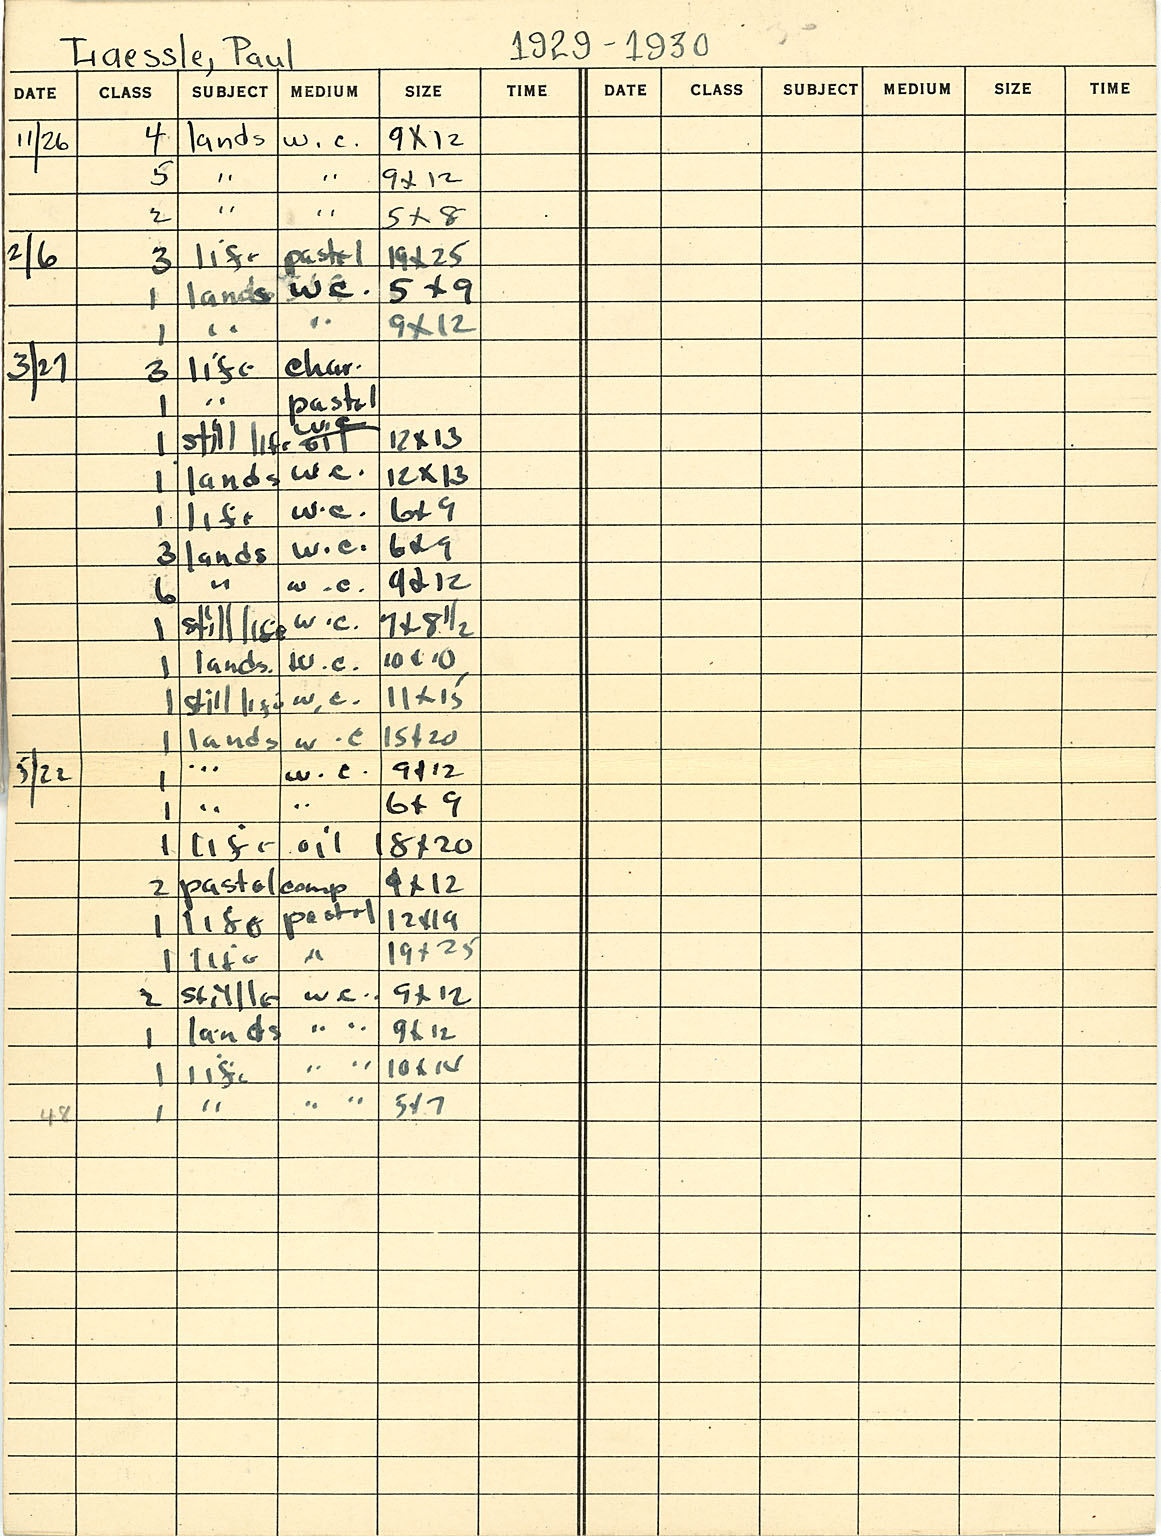 Laessle, Paul 1929-1930
DATE CLASS SUBJECT MEDIUM SIZE TIME DATE CLASS SUBJECT MEDIUM SIZE TIME
11/26 4 lands w.c. 9x12
5 " " 9x12
2 " " 5x8
2/6 3 life pastel 19x25
1 lands w.c. 5x9
1 " " 9x12
3/27 3 life char.
1 " pastel
1 still life w.c. oil 12x13
1 lands w.c. 12x13
1 life w.c. 6x9
3 lands w.c. 6x9
6 " w.c. 9x12
1 still life w.c. 7x8 1/2
1 lands. w.c. 10x10
1 still life w.c. 11x15
1 lands w.c 15x20
5/22 1 " w.c. 9x12
1 " " 6x9
1 life oil 18x20
2 pastel comp 9x12
1 life pastel 12x19
1 life " 19x25
2 w.c. 9x12
1 lands " " 9x12
1 life " " 10x14
48 1 " " " 5x7